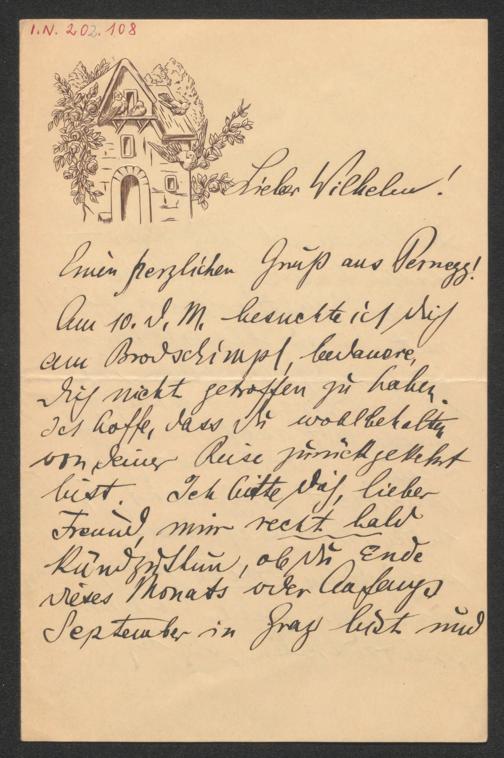 I.N. 202.108
Lieber Wilhelm!
Einen herzlichen Gruß aus Pernegg!
Am 10. d. M. besuchte ich dich
am Brodschimpl, bedauere,
dich nicht getroffen zu haben.
Ich hoffe, dass du wohlbehalten
von deiner Reise zurückgekehrt
bist. Ich bitte dich, lieber
Freund, mir recht bald
kundzuthun, ob du Ende
dieses Monats oder Anfangs
September in Graz bist und